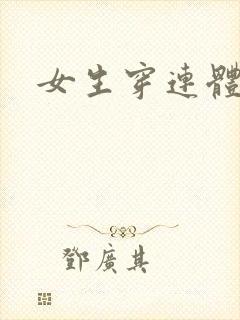 女生穿連體
鄧廣其